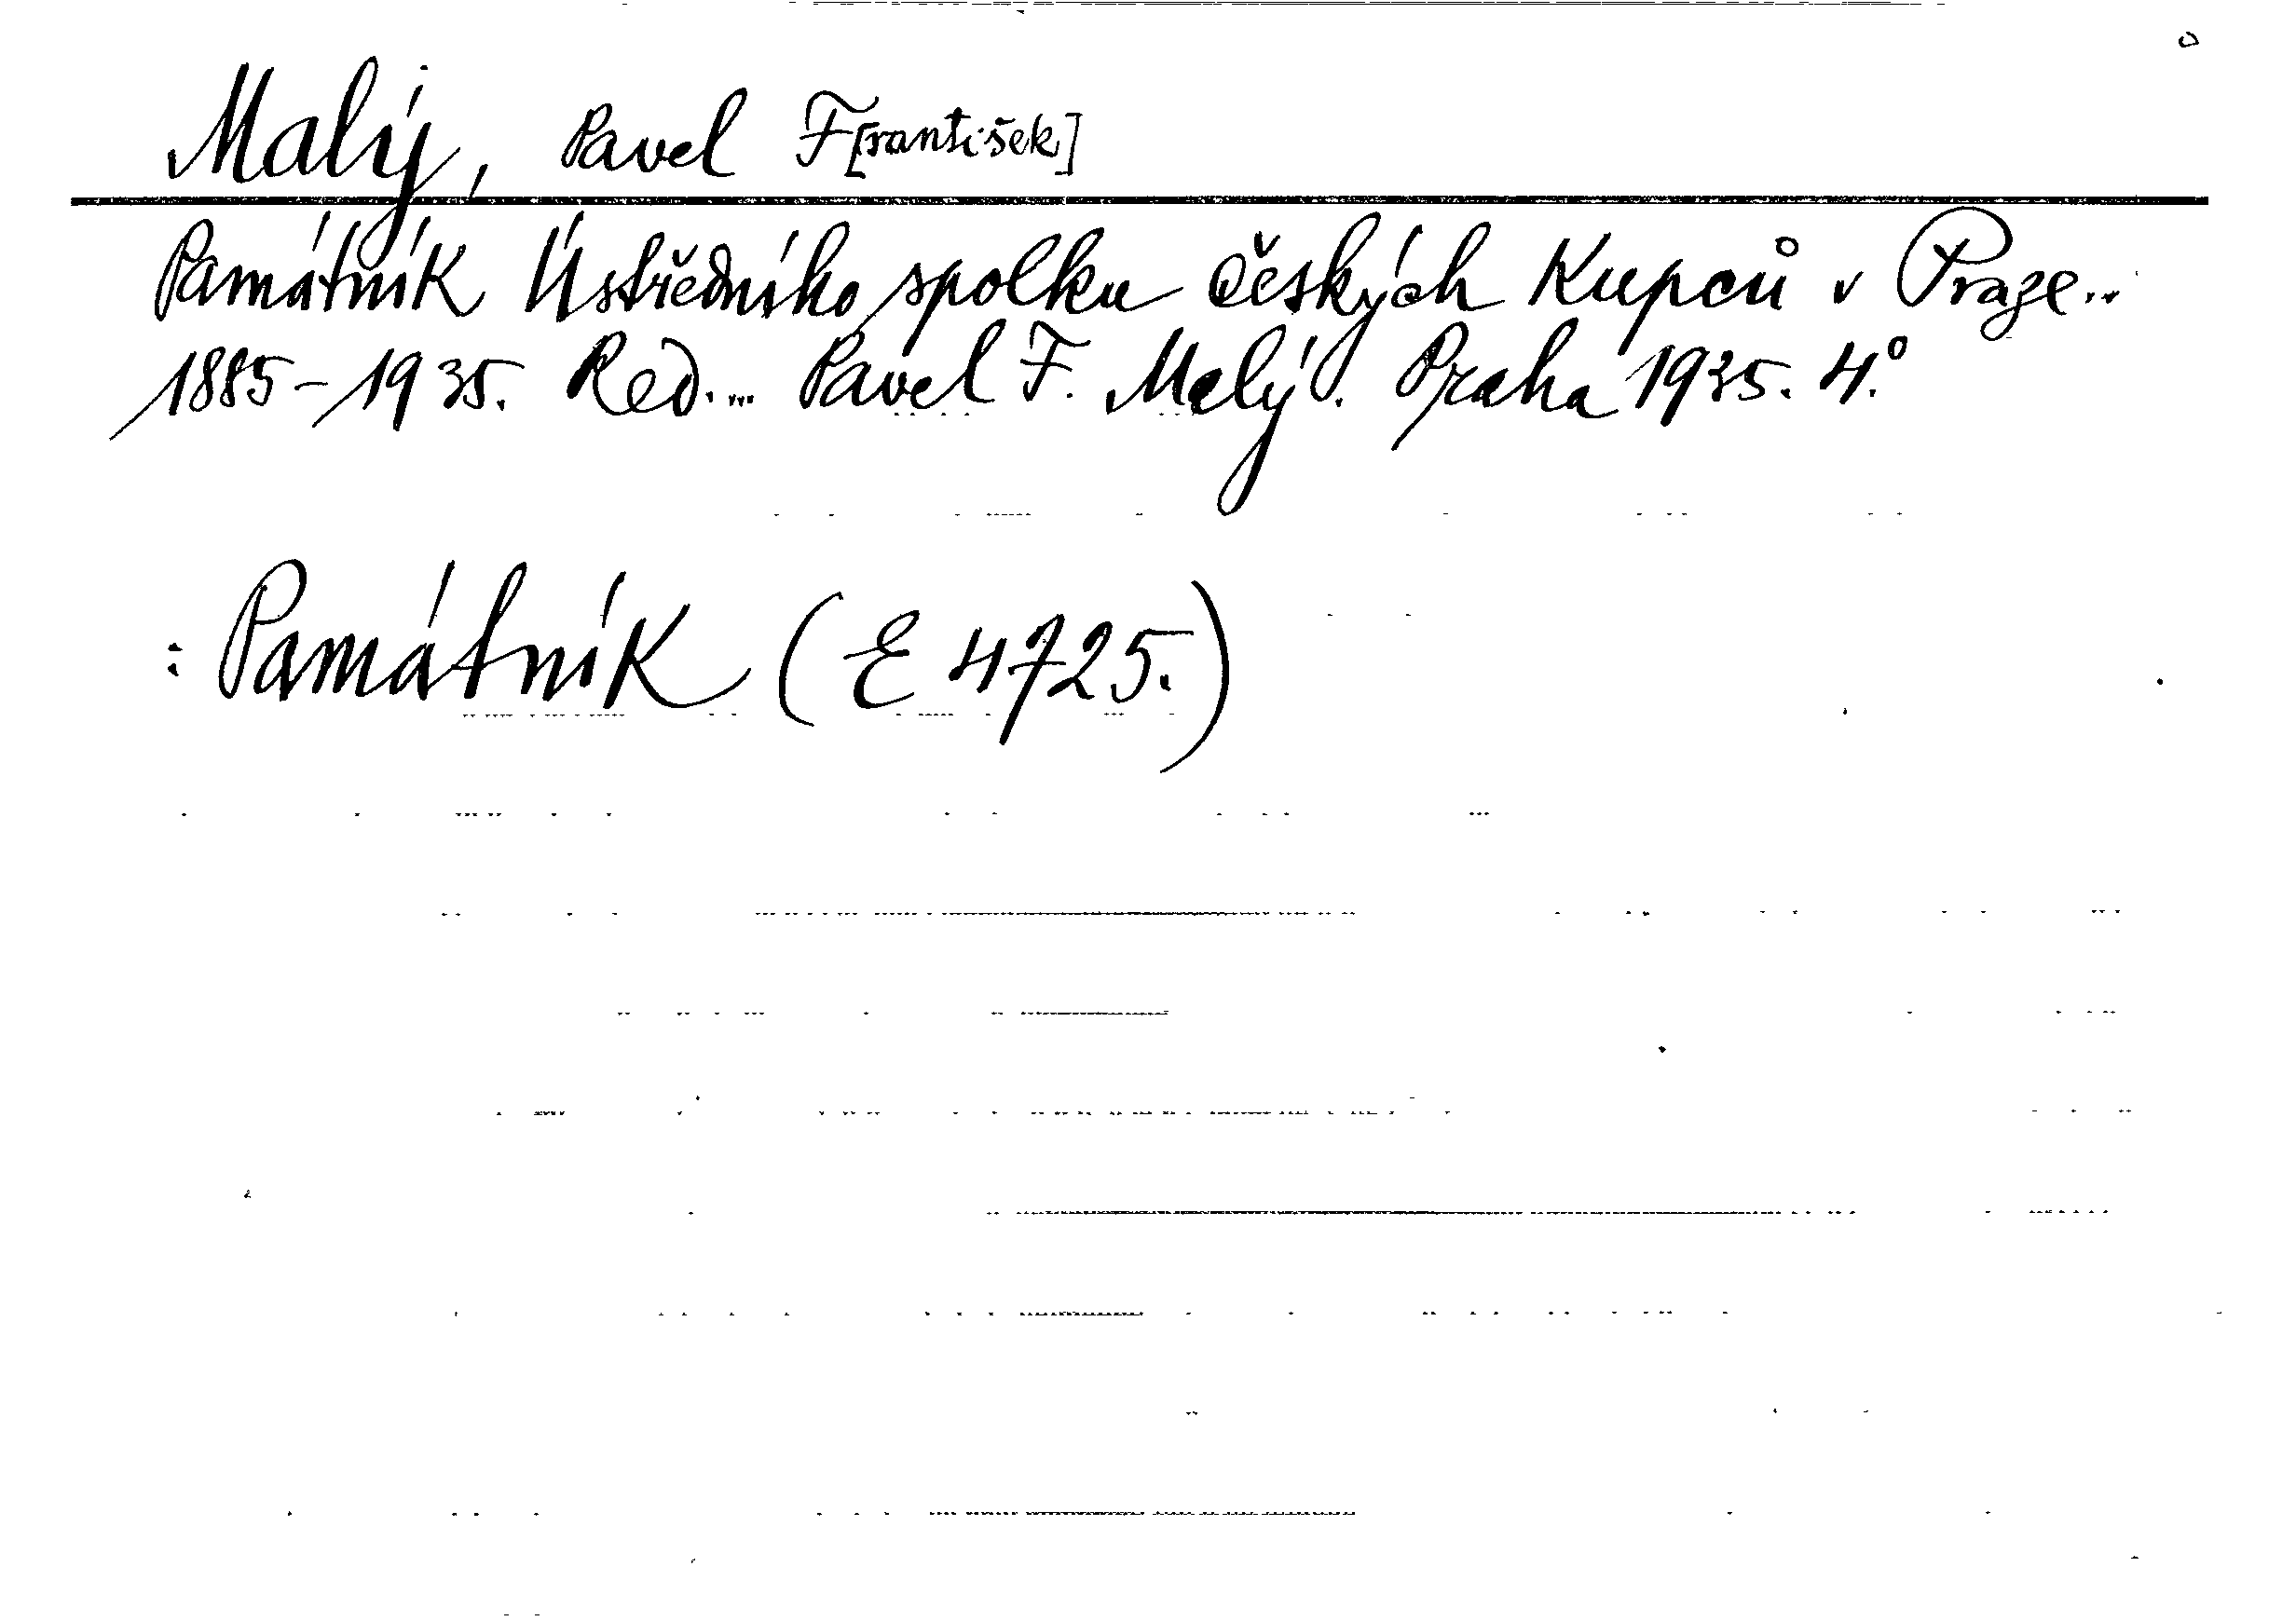 Malý, Pavel F[rantišek]
Památník Ústředního spolku českých kupců v Praze...
1885-1935. Red.... Pavel F. Malý. Praha 1935. 4.°
: Památník (E 4725.)